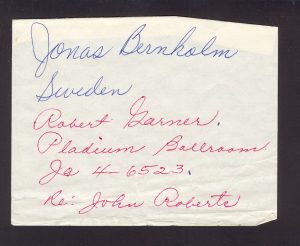 Jonas Bernholm
Sweden
Robert Garner.
Pladium Ballroom
Ja 4-6523.
Re: John Roberts